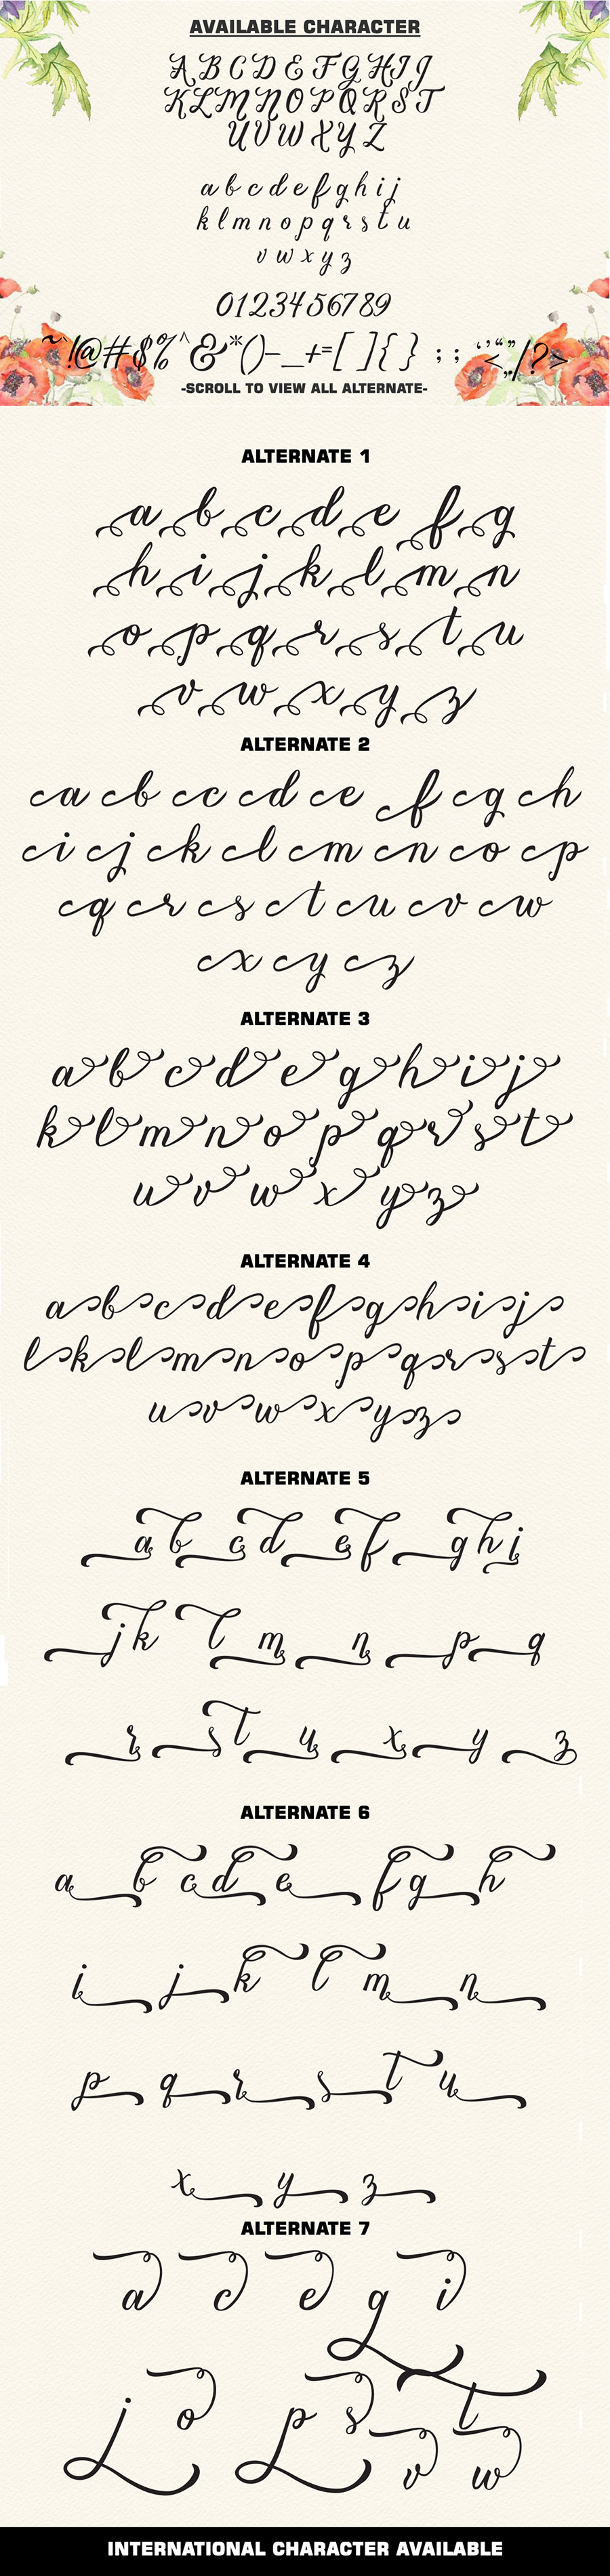 AVAILABLE CHARACTER
A B C D E F G H I J
K L M N O P Q R S T
U V W X Y Z
a b c d e f g h i j
k l m n o p q r s t u
v w x y z
0 1 2 3 4 5 6 7 8 9
~`!@#$%^&*()-_+=[ ]{ } ; ; ‘’“”<,./?>
-SCROLL TO VIEW ALL ALTERNATE-
ALTERNATE 1
a b c d e f g
h i j k l m n
o p q r s t u
v w x y z
ALTERNATE 2
ca cb cc cd ce cf cg ch
ci cj ck cl cm cn co cp
cq cr cs ct cu cv cw
cx cy cz
ALTERNATE 3
a b c d e g h i j
k l m n o p q r s t
u v w x y z
ALTERNATE 4
a b c d e f g h i j
l k l m n o p q r s t
u v w x y z
ALTERNATE 5
a b c d e f g h i
j k l m n p q
r s t u x y z
ALTERNATE 6
a b c d e f g h
i j k l m n
p q r s t u
x y z
ALTERNATE 7
a c e g i
j o p s t
v w
INTERNATIONAL CHARACTER AVAILABLE